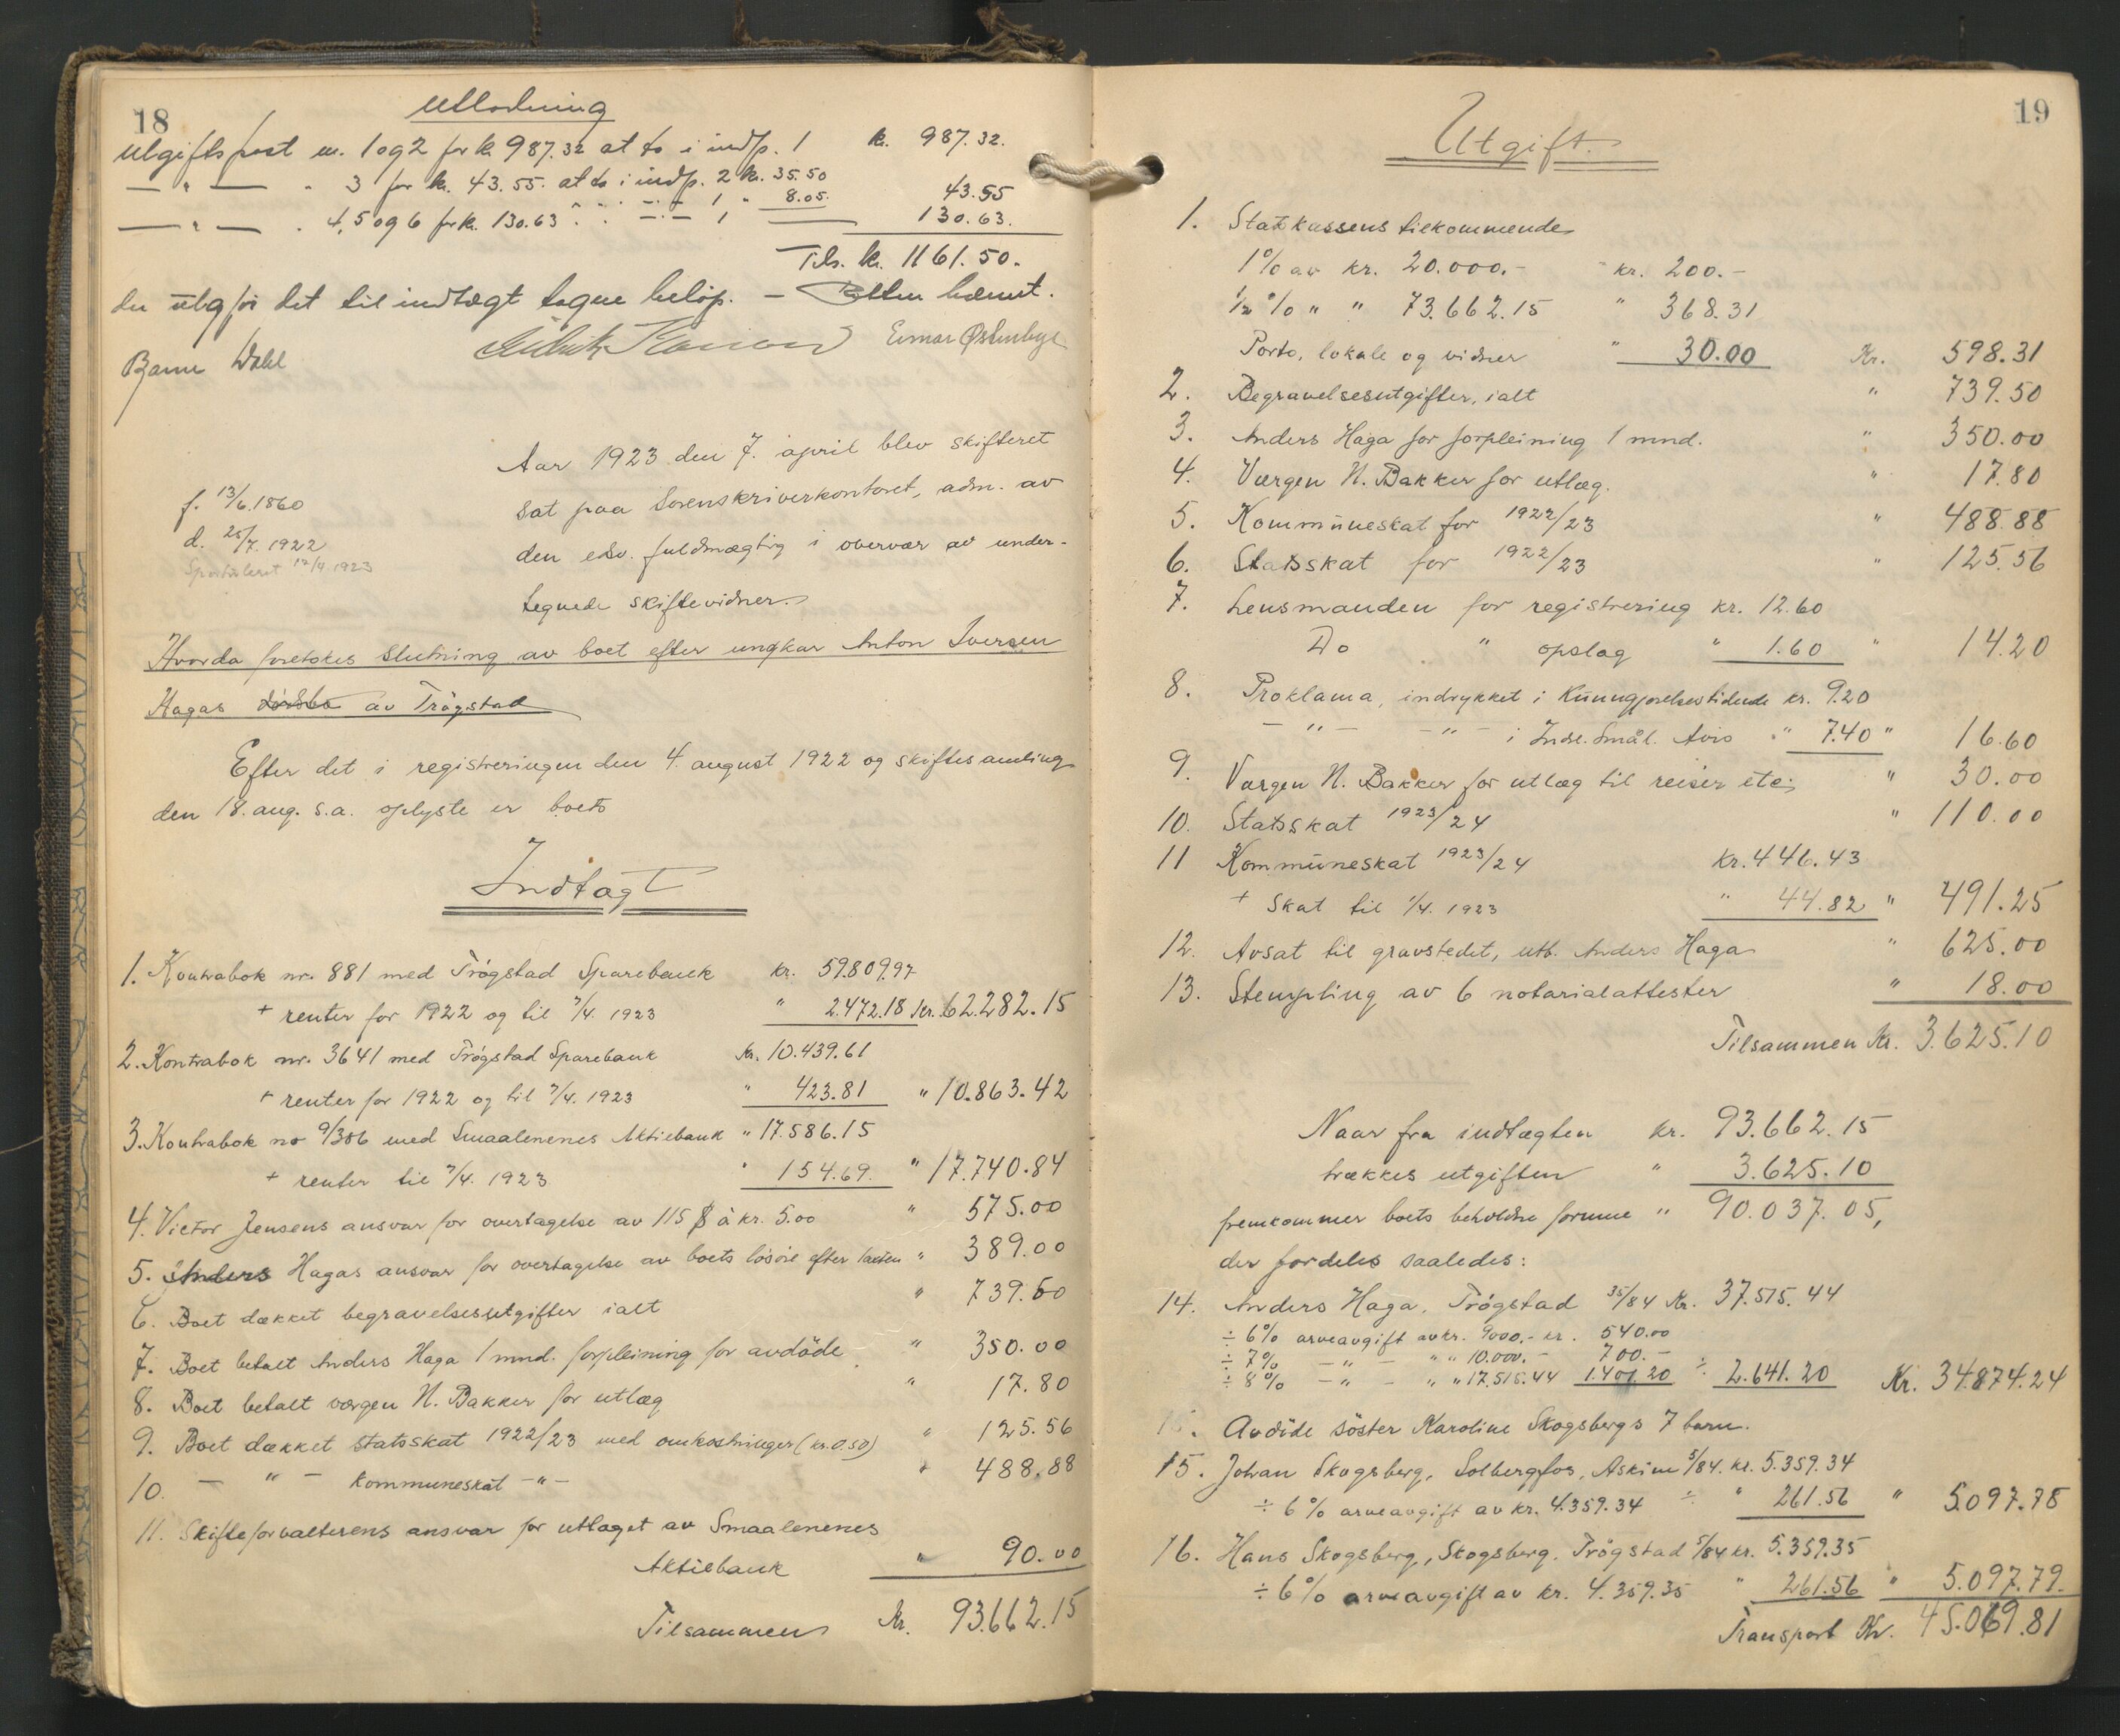 18
Utlodning
Utgiftspost nr. 1 og 2 for kr 987.32 at to i indp. 1 kr. 987.32.
— " — " 3 for kr. 43.55. at to i indp. 2 kr. 35.50
— " — 1 " 8.05. 43.55
— " — . 4, 5 og 6 for kr. 130.63 " " — " — 1 — 130.63.
Tils. kr. 1161.50.
der utgjør det til indtægt tagne beløp. — Retten hævet.
Einar Østenbye
Bjarne Dahl
Aar 1923 den 7. april blev skifteret
sat paa Sorenskriverkontoret, adm. av
den edsv. fuldmægtig i overvær av under-
tegnede skiftevidner.
f. 13/6.1860
d. 25/7. 1922
Sportuleret 12/4 1923
Hvorda foretokes slutning av boet efter ungkar Anton Iversen
Hagas dødsbo av Trøgstad
Efter det i registreringen den 4 august 1922 og skiftesamling
den 18. aug. s.a. oplyste er boets
Indtægt
1. Kontrabok nr. 881 med Trøgstad Sparebank kr. 59.809.97
+ renter for 1922 og til 7/4. 1923 " 2.472.18 kr. 62.282.15
2. Kontrabok nr. 3641 med Trøgstad Sparebank Kr. 10.439.61
+ renter for 1922 og til 7/4. 1923 " 423.81 " 10.863.42
3. Kontrabok no 9/306 med Smaalenenes Aktiebank " 17.586.15
+ renter til 7/4. 1923 " 154.69. " 17.740.84
4. Victor Jensens ansvar for overtagelse av 115 $ à kr. 5.00 " 575.00
5. Anders Hagas ansvar for overtagelse av boets løsøre efter taxten " 389.00
6. Boet dækket begravelsesutgifter ialt " 739.50
7. Boet betalt Anders Haga 1 mnd. forpleining for avdøde " 350.00
8. Boet betalt værgen N. Bakker for utlæg " 17.80
9. Boet dækket statsskat 1922/23 med omkostninger (kr. 0.50) " 125.56
10. — " — kommuneskat — " — " 488.88
11. Skifteforvalterens ansvar for uttaget av Smaalenenes
Aktiebank " 90.00
Tilsammen Kr. 93.662.15
19
Utgift.
1. Statskassens tilkommende
1% av kr. 20.000.- kr. 200.-
1/2 % " " 73.662.15 " 368.31
Porto, lokale og vidner " 30.00 Kr. 598.31
2. Begravelsesutgifter, ialt " 739.50
3. Anders Haga for forpleining 1 mnd. " 350.00
4. Værgen N. Bakker for utlæg. " 17.80
5. Kommuneskat for 1922/23 " 488.88
6. Statsskat for 1922/23 " 125.56
7. Lensmanden for registrering kr. 12.60
Do " opslag " 1.60 " 14.20
8. Proklama, indrykket i Kunngjørelsestidende kr. 9.20
— " — — " — i Indre Smål. Avis " 7.40 " 16.60
9. Værgen N. Bakker for utlæg til reiser etc. " 30.00
10. Statsskat 1923/24 " 110.00
11 Kommuneskat 1923/24 kr. 446.43
+ Skat til 1/4. 1923 " 44.82 " 491.25
12. Avsat til gravstedet, utb. Anders Haga " 625.00
13. Stempling av 6 notarialattester " 18.00
Tilsammen Kr. 3.625.10
Naar fra indtægten kr. 93.662.15
trækkes utgiften " 3.625.10
fremkommer boets beholdne formue " 90.037.05,
der fordeles saaledes:
14. Anders Haga, Trøgstad 35/84 Kr. 37.515.44
÷ 6% arveavgift av kr. 9000.- kr. 540.00
÷ 7% — " — " " 10.000.- 700.-
÷ 8% — " — " " 17.515.44 1.401.20 ÷ 2.641.20 Kr. 34.874.24
Avdøde søster Karoline Skogsbergs 7 barn.
15. Johan Skogsberg, Solbergfos, Askim 5/84. kr. 5.359.34
÷ 6% arveavgift av kr. 4.359.34 ÷ " 261.56 " 5.097.78
16. Hans Skogsberg, Skogsberg, Trøgstad 5/84 kr. 5.359.35
÷ 6% arveavgift av kr. 4.359.35 " 261.56 " 5.097.79.
Transport Kr. 45.069.81